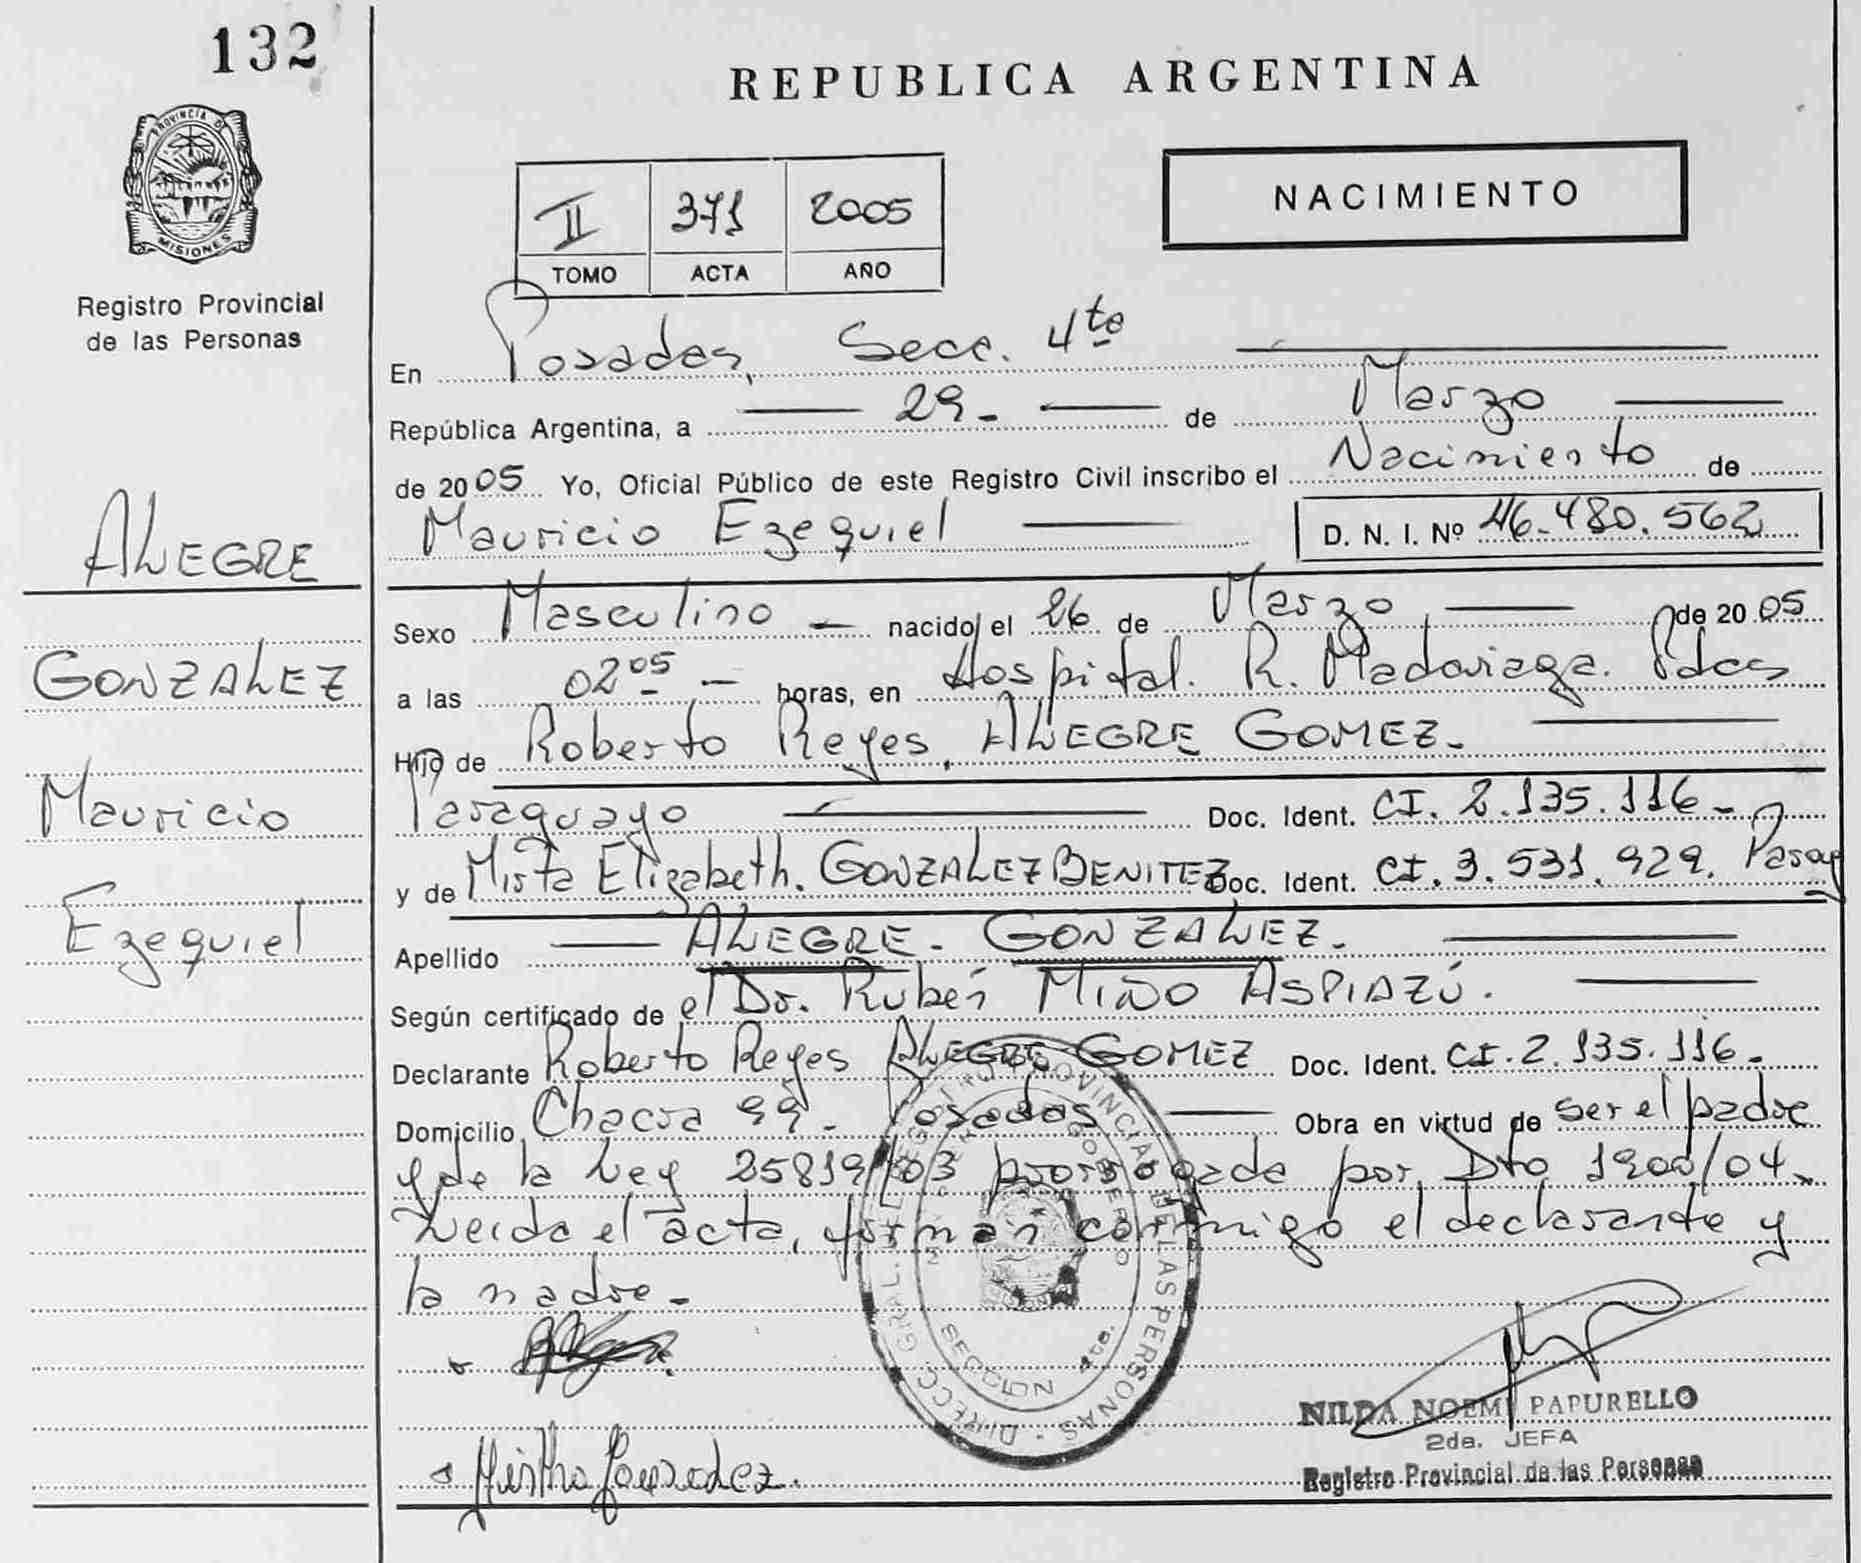 132
PROVINCIA DE
MISIONES
Registro Provincial
de las Personas
ALEGRE
GONZALEZ
Mauricio
Ezequiel
REPUBLICA ARGENTINA
II 371 2005
TOMO ACTA AÑO
NACIMIENTO
En Posadas, Secc. 4ta
República Argentina, a 29 de Marzo
de 2005 Yo, Oficial Público de este Registro Civil inscribo el Nacimiento de
Mauricio Ezequiel D. N. I. Nº 46.480.562
Sexo Masculino nacido el 26 de Marzo de 2005
a las 02 05 horas, en Hospital. R. Madariaga. Pdas
Hijo de Roberto Reyes, ALEGRE GOMEZ.
Paraguayo Doc. Ident. CI. 2.135.116
y de Mirta Elizabeth. GONZALEZ BENITEZ Doc. Ident. CI. 3.531.929. Parag
Apellido ALEGRE. GONZALEZ.
Según certificado de el Dr. Rubén MIÑO ASPIAZÚ.
Declarante Roberto Reyes ALEGRE GOMEZ Doc. Ident. CI. 2.135.116
Domicilio Chacra 99 - Posadas Obra en virtud de ser el padre
y de la Ley 25819/03 prorrogada por Dto 1900/04.
Leida el acta, firman conmigo el declarante y
la madre -
DIRECC. GRAL. DEL REGISTRO PROVINCIAL DE LAS PERSONAS
SECCION 4ta.
Mirtha Gonzalez.
NILDA NOEMI PAPURELLO
2da. JEFA
Registro Provincial de las Personas